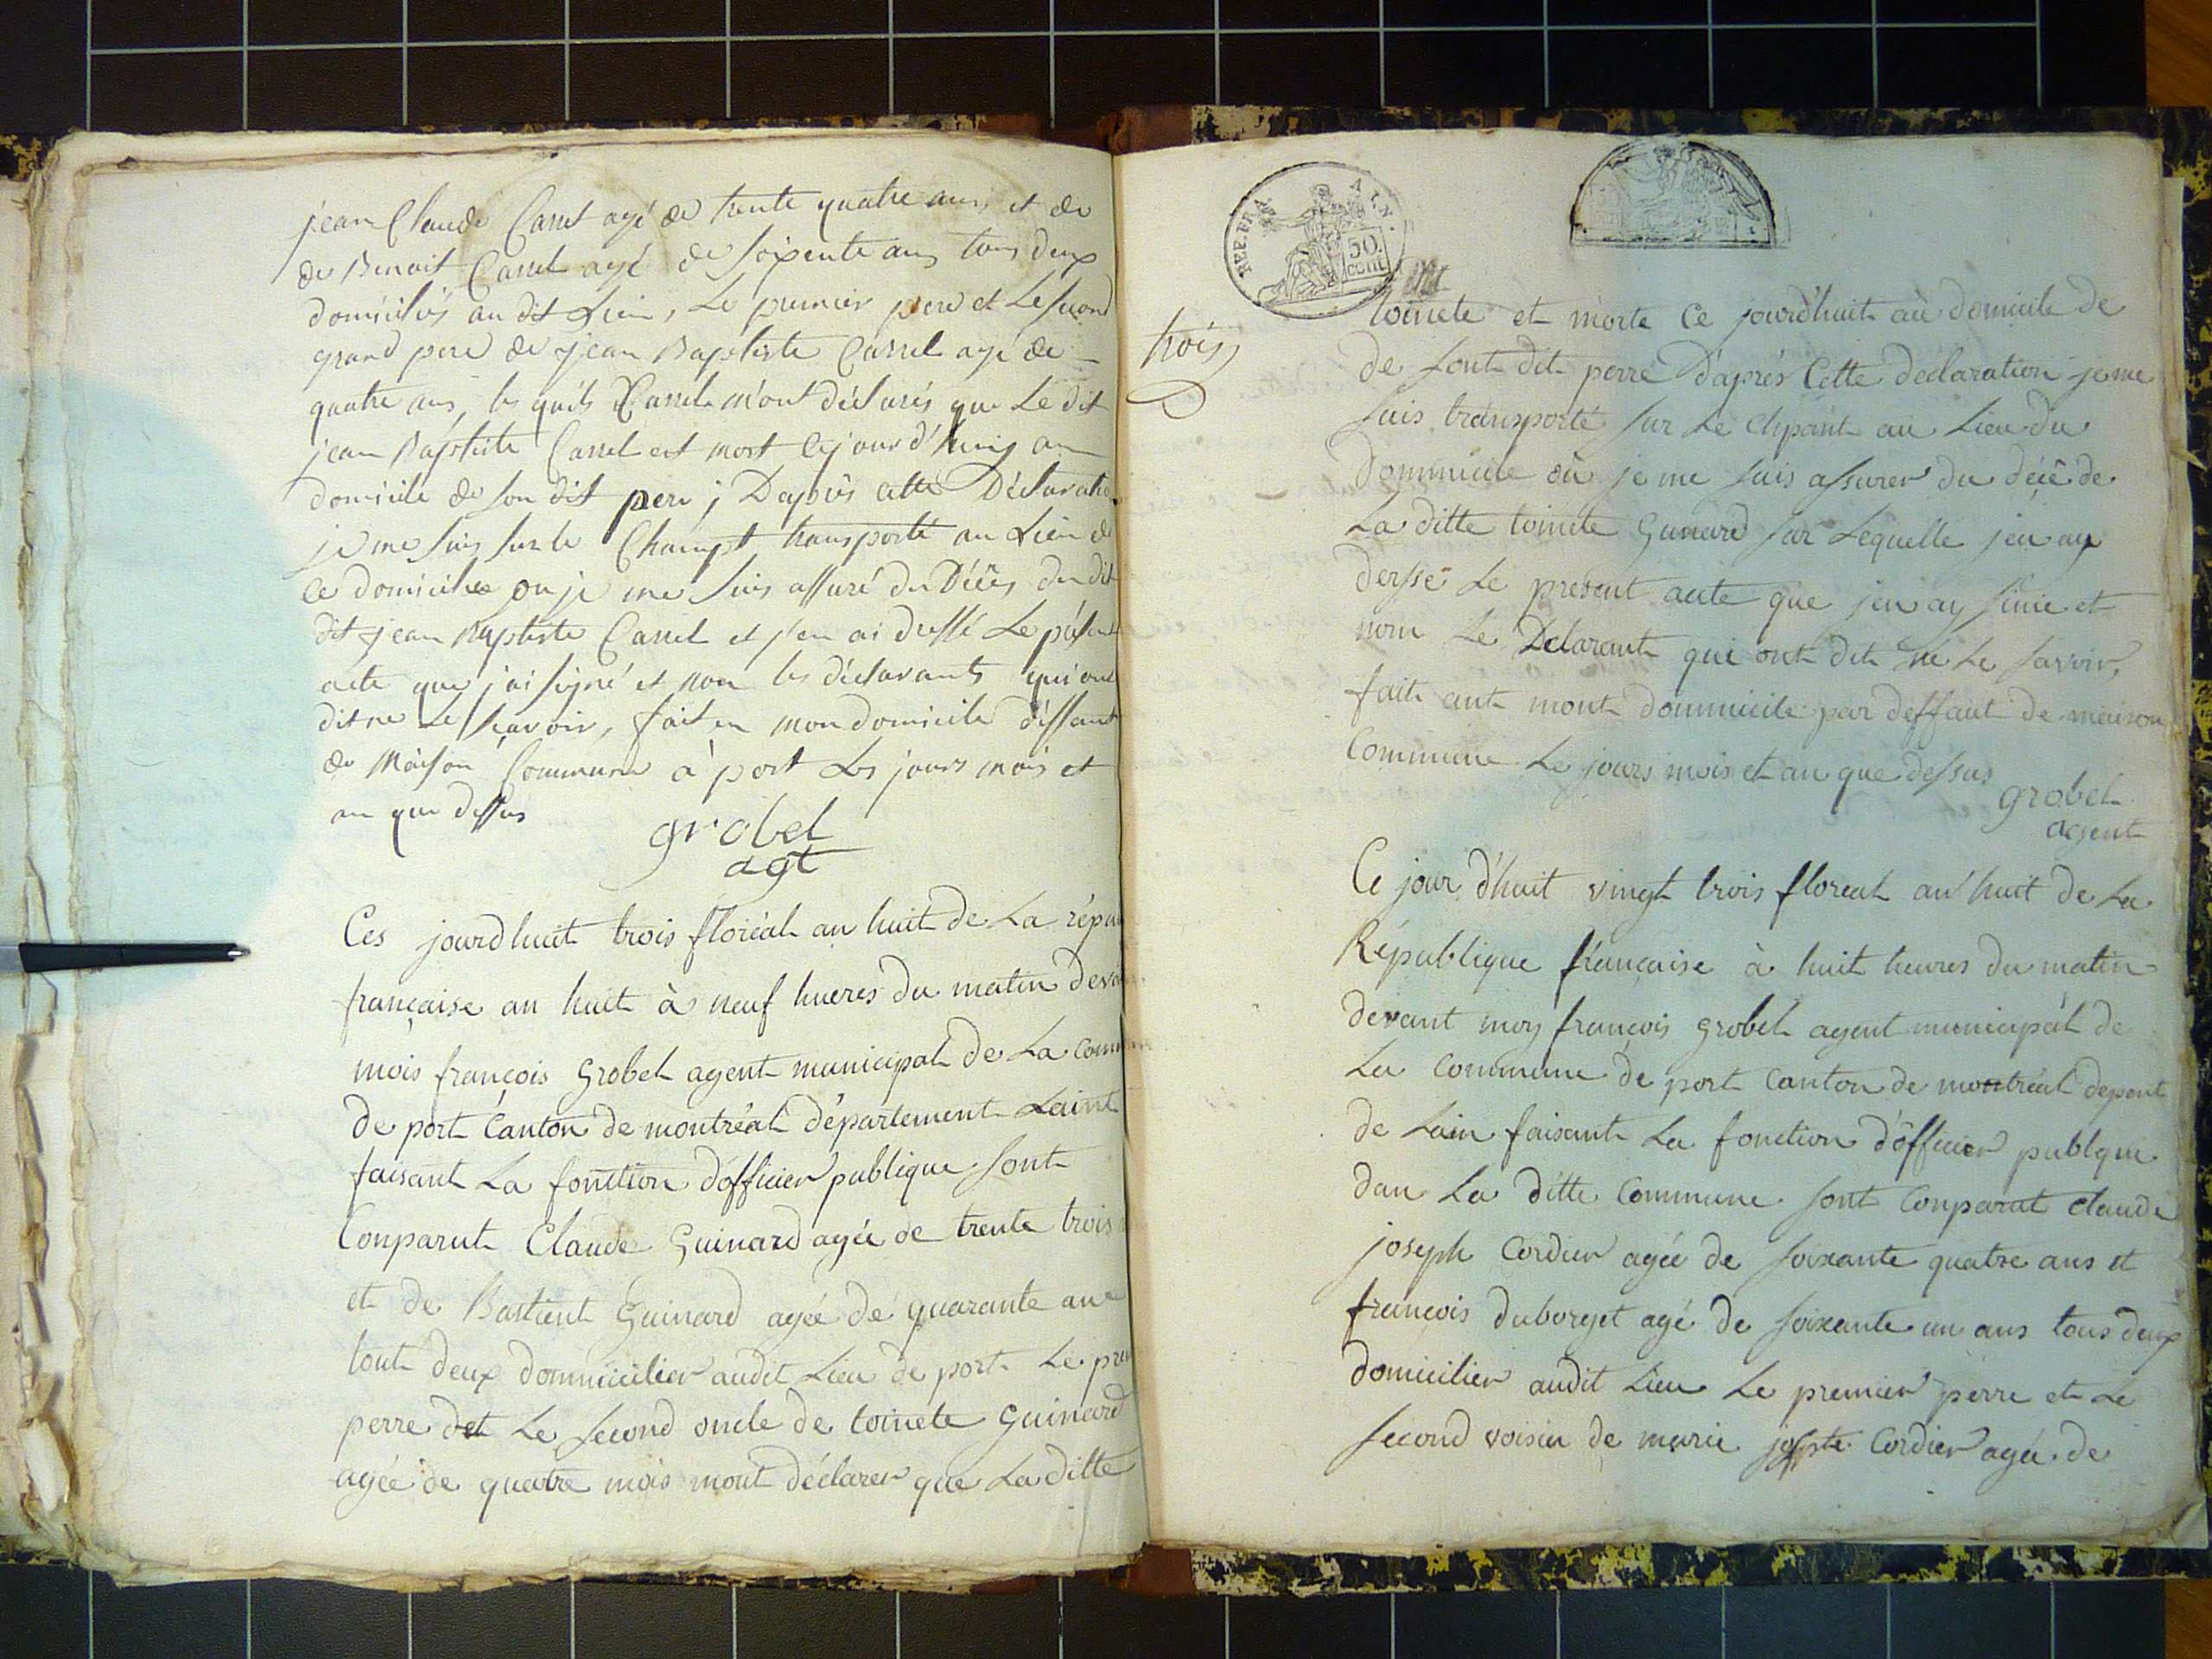 jean Claude Carrel agé de trente quatre ans et de
de Benoit Carrel agé de soixente ans tous deux
domiciliés au dit Lieu, Le premier pere et Le second
grand pere de jean Baptiste Carrel agé de
quatre ans, les quels Carrel m'ont déclarés que Le dit
jean Baptiste Carrel est mort cejourd'huy au
domicile de son dit pere ; Daprès cette Déclaratio
je me suis sur le Champt transporté au Lieu de
ce domicile ou je me suis assuré du Décès du dit
dit jean Baptiste Carrel et j'en ai dressé Le présent
acte que j'ai signé et non les déclarants qui ont
dit ne Le savoir, fait en mon domicile
de Maison Commune à port Les jours mois et
an que dessus
grobel
agt
Ces jourdhuit trois floréal an huit de La répu
française an huit à neuf hueres du matin deva
mois françois Grobel agent municipal de La comm
de port Canton de montréal département Laint
faisant La fonction d'officier publique sont
Conparut Claude Guinard agée de trente trois
et de Bastient Guinard agée de quarante ans
tout deux dommicilier audit Lieu de port Le pre
perre det Le second oncle de toinete Guinard
agée de quatre mois mont déclarer que La ditte
REP. FRA
50.
cent
trois
toinete et morte Ce jourd'huit aù domicile de
de sont dit perre d'aprés Cette déclaration je me
suis transporté sur Le Chpant au Lieu du
Dommicile où je me suis assurer du décê de
La ditte toinete Gunard sur Lequelle jen ay
dersse Le présent acte que jen ay sinie et
nom Le Delarant qui ont dit ne Le savoir,
fait ant mont dommicile par deffaut de maison
Commune Le jours mois et an que dessus
grobel
agent
Ce jour d'huit vingt trois floreal an huit de La
République française à huit heures du matin
devant moy françois grobel agent municipál de
La commune de port canton de montréal depent
de Lain faisant La fonction d'officier publque
dan La ditte Commune sont Conparut Claude
joseph Cordier agée de soixante quatre ans et
françois duborget agé de soixante un ans tous deux
domicilier audit Lieu Le premier perre et Le
second voisin de marie Cordier agée de